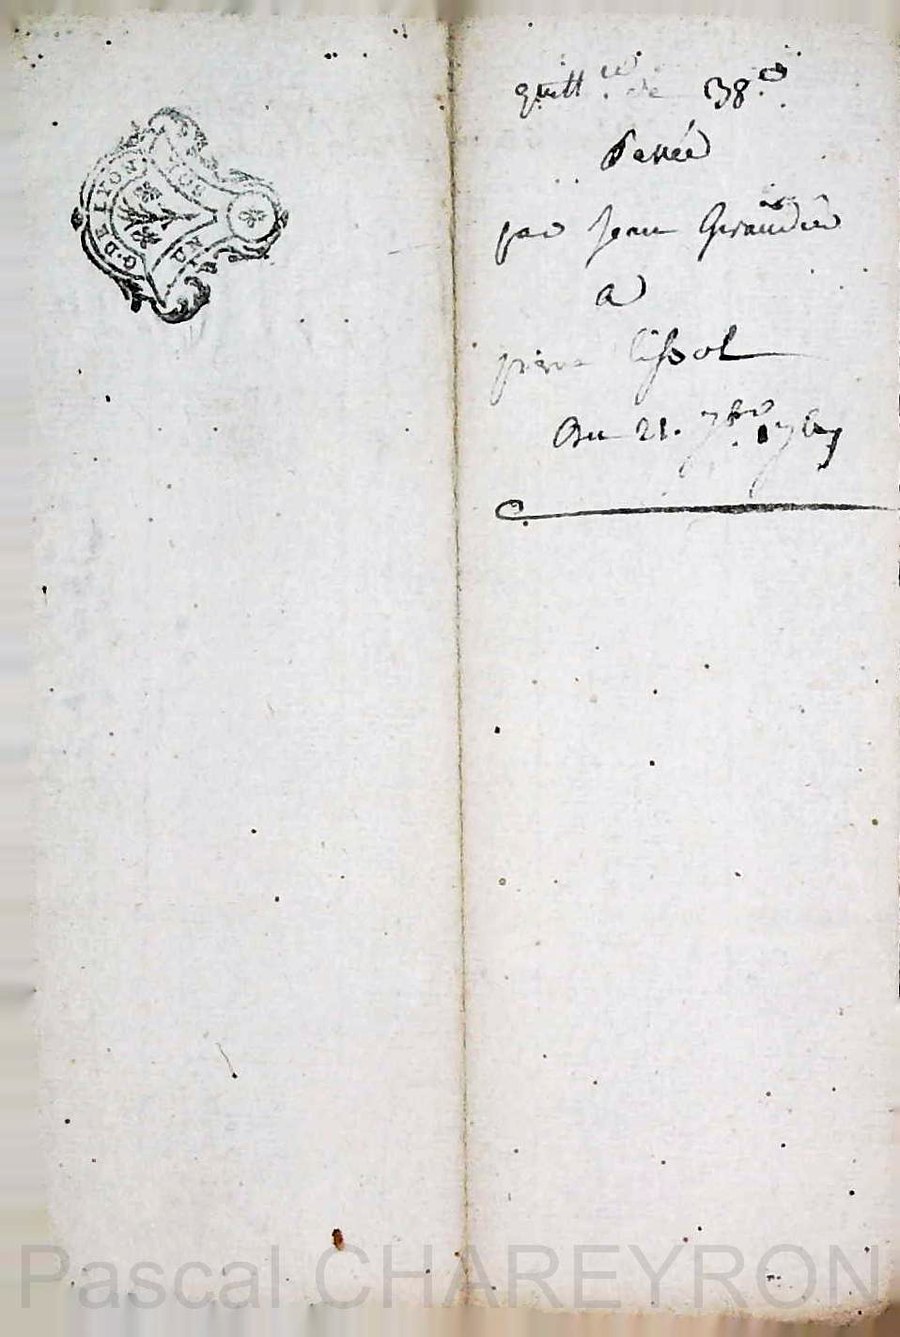 G. DE LYON
UN SOL
quitt.ce de 38.#
Passée
par Jean Giraudier
a
pierre Cissol
Du 21. 7bre 1767
Pascal CHAREYRON